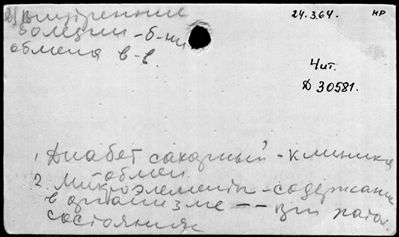 внутренние
болезни - б-ни
обмена в-в.
24.3.64.
МР
Чит.
Д 30581.
1. Диабет сахарный - клиника
- обмен
2. Микроэлементы - содержание
в организме -- при патол.
состояниях